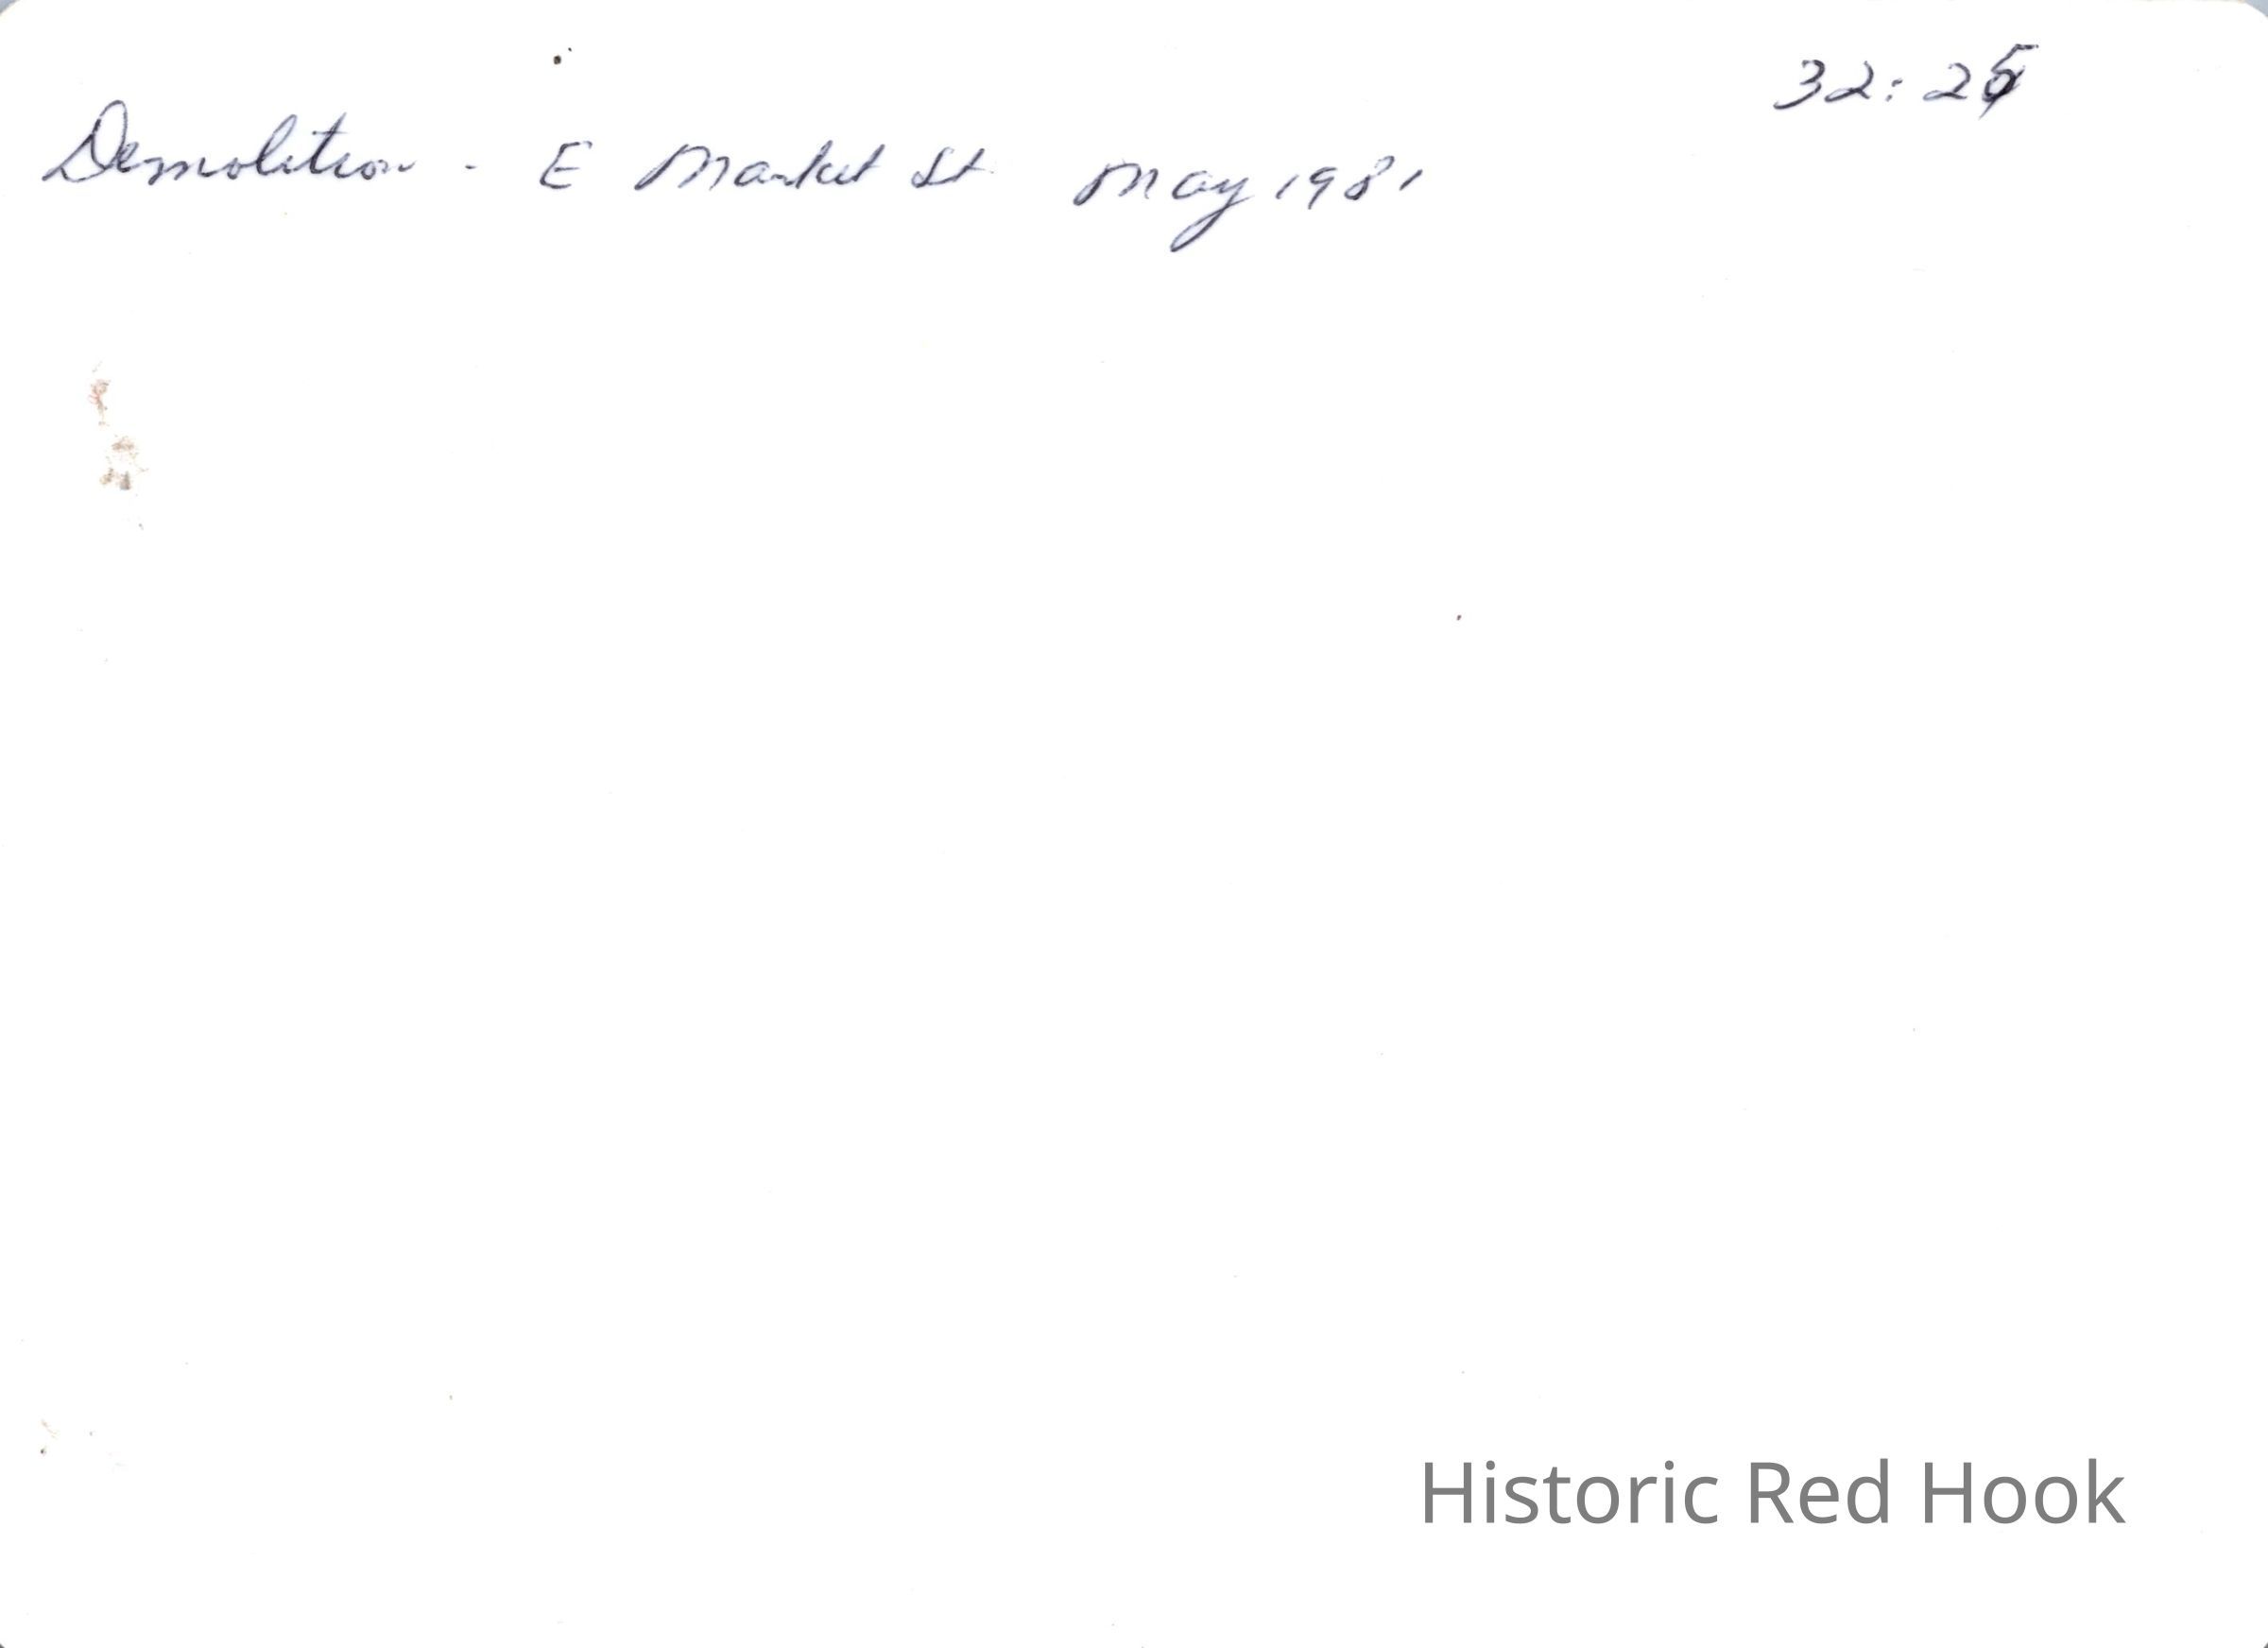 32:25
Demolition - E Market St May 1981
Historic Red Hook